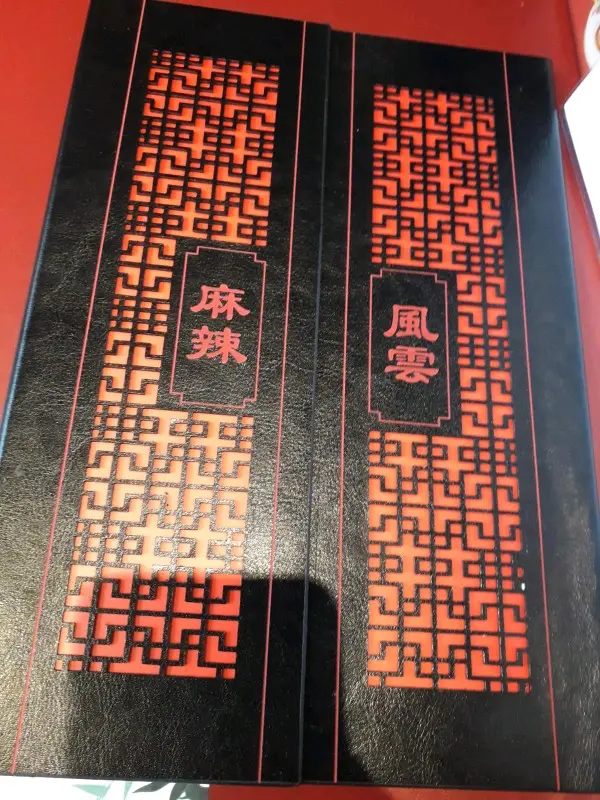 麻辣
風雲